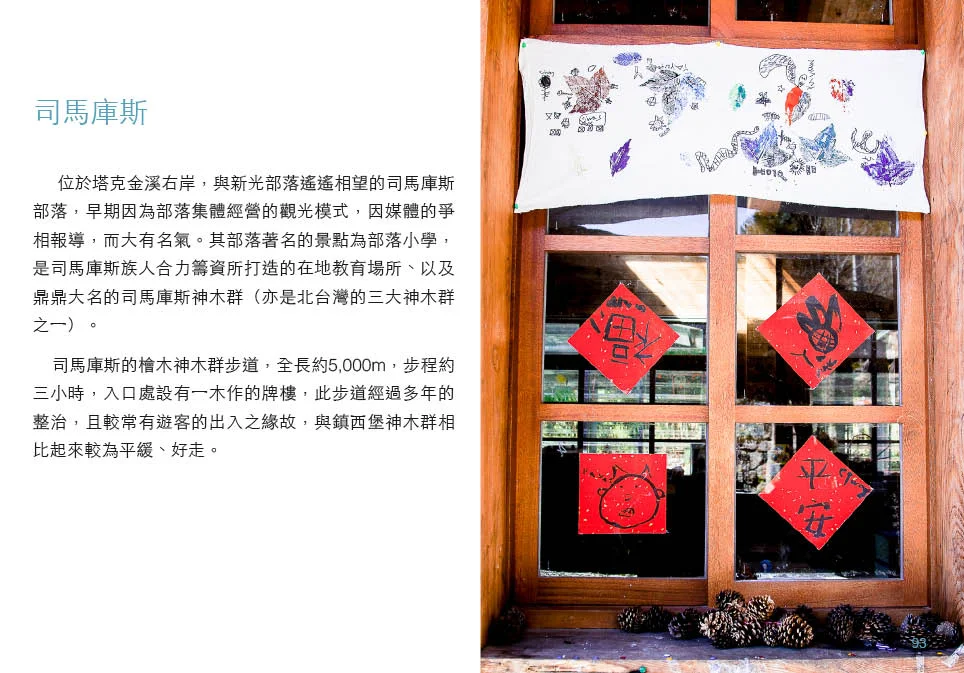 司馬庫斯
位於塔克金溪右岸，與新光部落遙遙相望的司馬庫斯
部落，早期因為部落集體經營的觀光模式，因媒體的爭
相報導，而大有名氣。其部落著名的景點為部落小學，
是司馬庫斯族人合力籌資所打造的在地教育場所、以及
鼎鼎大名的司馬庫斯神木群（亦是北台灣的三大神木群
之一）。
司馬庫斯的檜木神木群步道，全長約5,000m，步程約
三小時，入口處設有一木作的牌樓，此步道經過多年的
整治，且較常有遊客的出入之緣故，與鎮西堡神木群相
比起來較為平緩、好走。
福
平安
93